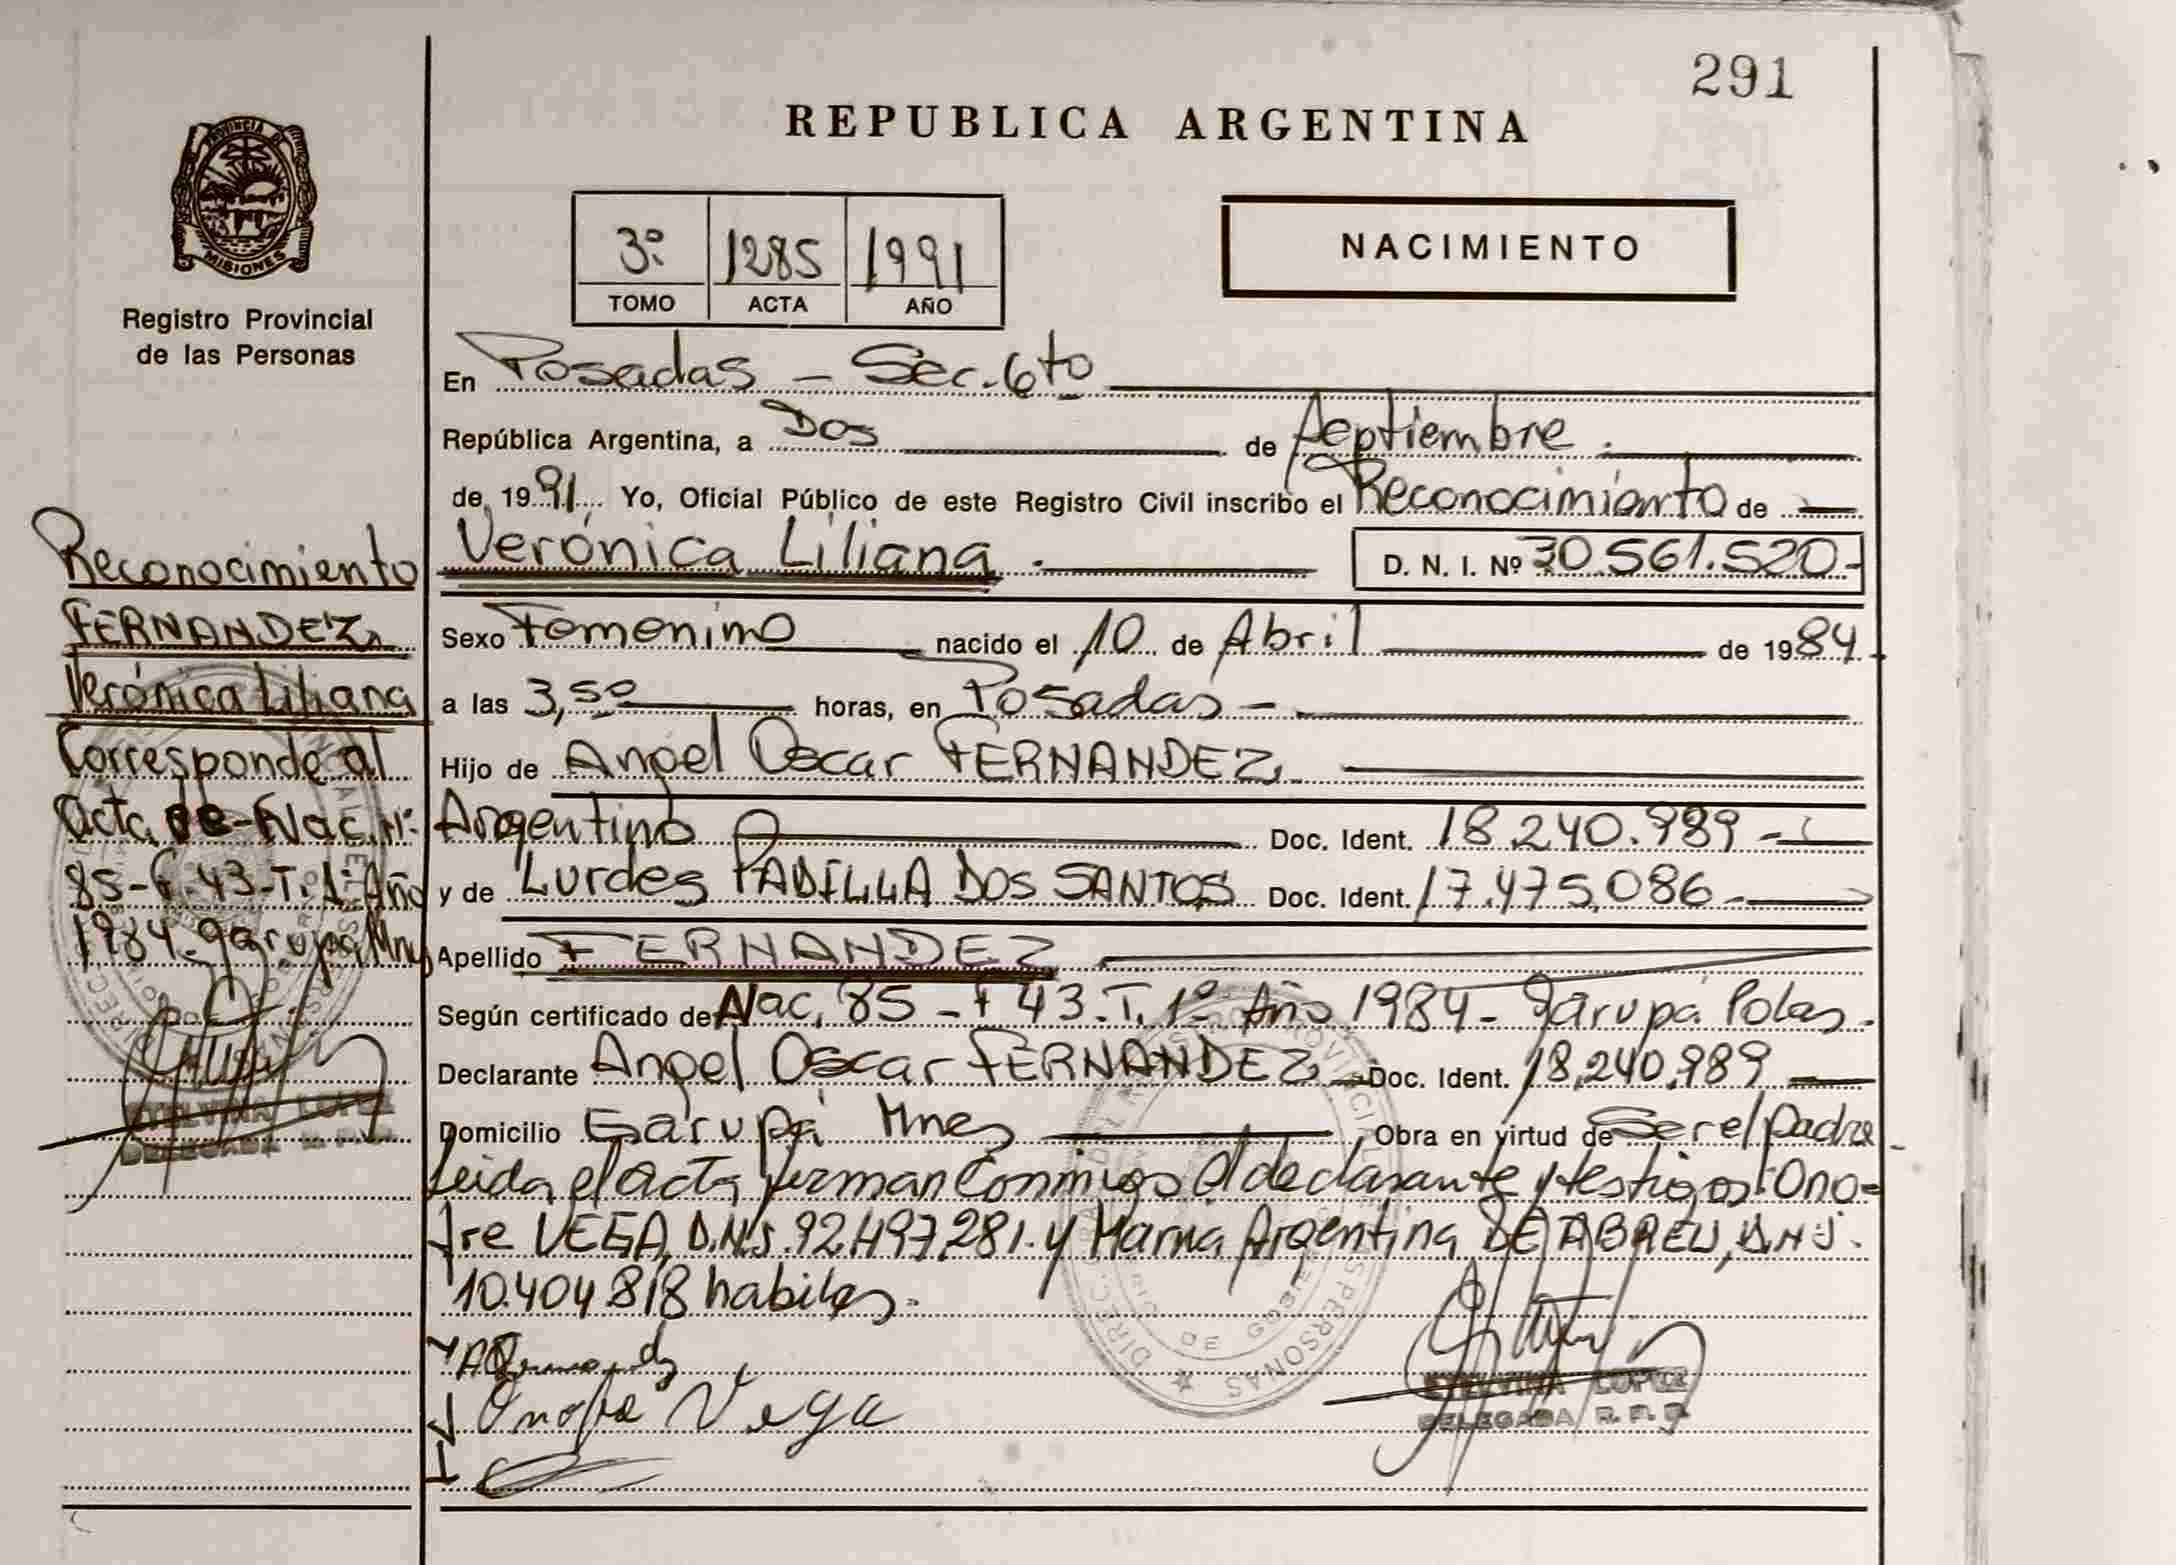 291
REPUBLICA ARGENTINA
PROVINCIA DE
MISIONES
Registro Provincial
de las Personas
3º 1285 1991
TOMO ACTA AÑO
NACIMIENTO
En Posadas - Sec. 6to
República Argentina, a Dos de Septiembre.
de 1991. Yo, Oficial Público de este Registro Civil inscribo el Reconocimiento de
Verónica Liliana. D. N. I. Nº 30.561.520-
Sexo Femenino nacido el 10 de Abril de 1984
a las 3,50 horas, en Posadas -
Hijo de Angel Oscar FERNANDEZ
Argentino Doc. Ident. 18.240.989 -
y de Lurdes PADILLA DOS SANTOS Doc. Ident. 17.475,086 -
Apellido FERNANDEZ
Según certificado de Nac. 85 - F 43 - T. 1º Año 1984 - Garupá Polas.
Declarante Angel Oscar FERNANDEZ Doc. Ident. 18,240.989
Domicilio Garupá Mnes Obra en virtud de Ser el padre
Leida el acta firman conmigo el declarante y testigos: Ono=
fre VEGA, D.N.I. 92.497.281. y Maria Argentina DE ABREU, D.N.I.
10.404.818 habiles.
Onofre Vega
ETELVINA LOPEZ
DELEGADA R. P. P.
Reconocimiento
FERNANDEZ,
Verónica Liliana
Corresponde al
acta de Nac. Nº
85-F. 43-T. 1º Año
1984. Garupá Mnes
ETELVINA LOPEZ
DELEGADA R. P. P.